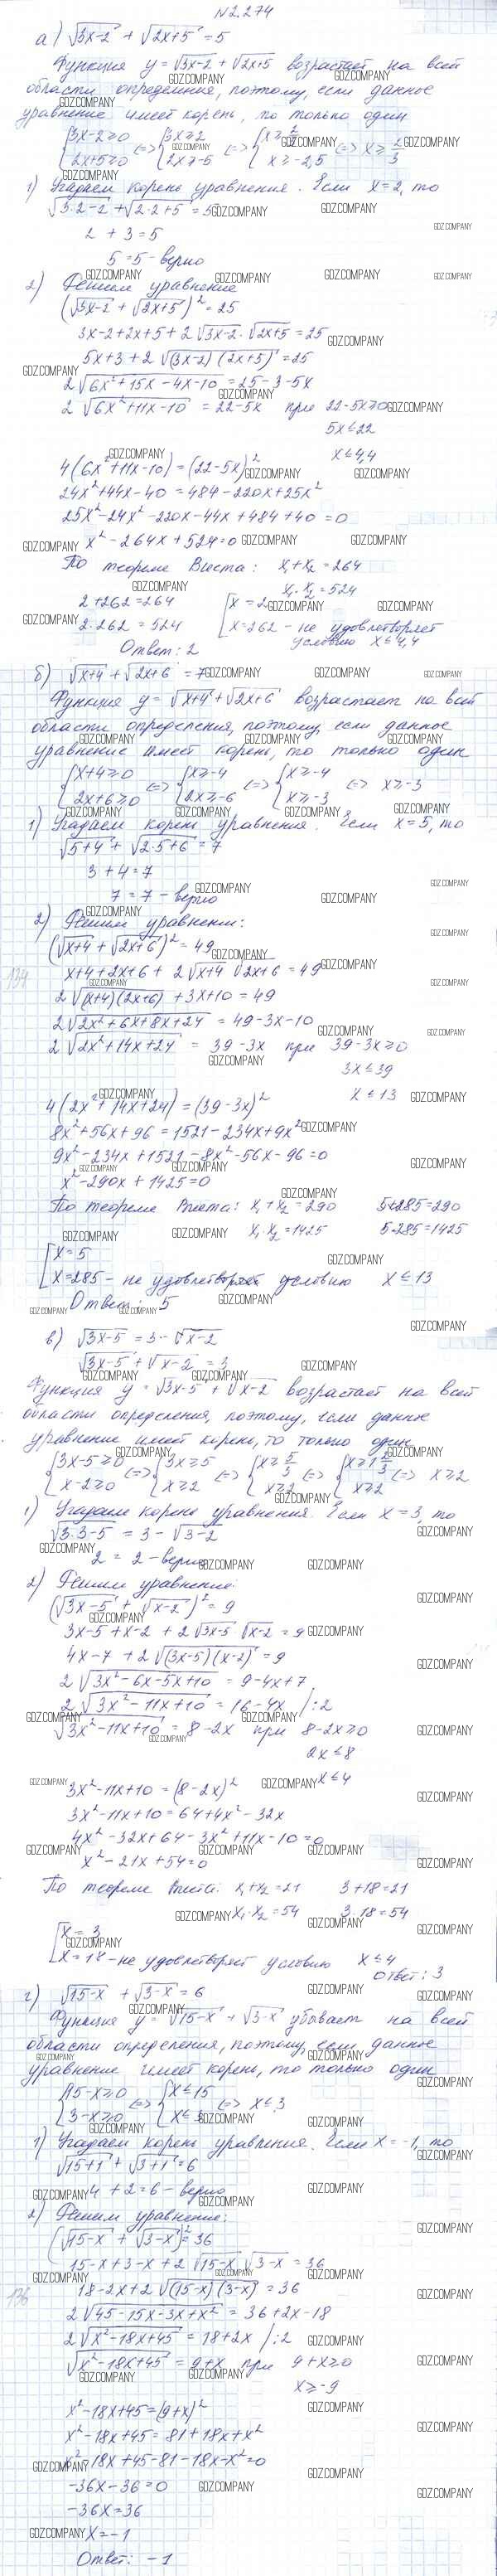 №2.274
а) √(3x-2) + √(2x+5) = 5
Функция y = √(3x-2) + √(2x+5) возрастает на всей
области определения, поэтому, если данное
уравнение имеет корень, то только один
{3x-2≥0 {3x≥2 {x≥2/3
{2x+5≥0 <=> {2x≥-5 <=> {x≥-2,5 <=> x≥2/3
1) Угадаем корень уравнения. Если x=2, то
√(3·2-2) + √(2·2+5) = 5
2 + 3 = 5
5 = 5 - верно
2) Решим уравнение
(√(3x-2) + √(2x+5))² = 25
3x-2+2x+5+2√(3x-2)·√(2x+5) = 25
5x+3+2√((3x-2)(2x+5)) = 25
2√(6x²+15x-4x-10) = 25-3-5x
2√(6x²+11x-10) = 22-5x при 22-5x≥0
5x≤22
x≤4,4
4(6x²+11x-10) = (22-5x)²
24x²+44x-40 = 484-220x+25x²
25x²-24x²-220x-44x+484+40 = 0
x²-264x+524=0
По теореме Виета: x₁+x₂=264
x₁·x₂=524
2+262=264 [x=2
2·262=524 [x=262 - не удовлетворяет
условию x≤4,4
Ответ: 2
б) √(x+4) + √(2x+6) = 7
Функция y = √(x+4) + √(2x+6) возрастает на всей
области определения, поэтому, если данное
уравнение имеет корень, то только один
{x+4≥0 {x≥-4 {x≥-4
{2x+6≥0 <=> {2x≥-6 <=> {x≥-3 <=> x≥-3
1) Угадаем корень уравнения. Если x=5, то
√(5+4) + √(2·5+6) = 7
3+4=7
7=7 - верно
2) Решим уравнение:
(√(x+4) + √(2x+6))² = 49
134
x+4+2x+6+2√(x+4) √(2x+6) = 49
2√((x+4)(2x+6)) + 3x+10 = 49
2√(2x²+6x+8x+24) = 49-3x-10
2√(2x²+14x+24) = 39-3x при 39-3x≥0
3x≤39
x≤13
4(2x²+14x+24) = (39-3x)²
8x²+56x+96 = 1521-234x+9x²
9x²-234x+1521-8x²-56x-96=0
x²-290x+1425=0
По теореме Виета: x₁+x₂=290 5+285=290
x₁·x₂=1425 5·285=1425
[x=5
[x=285 - не удовлетворяет условию x≤13
Ответ: 5
в) √(3x-5) = 3-√(x-2)
√(3x-5) + √(x-2) = 3
Функция y = √(3x-5) + √(x-2) возрастает на всей
области определения, поэтому, если данное
уравнение имеет корень, то только один
{3x-5≥0 {3x≥5 {x≥5/3 {x≥1 2/3
{x-2≥0 <=> {x≥2 <=> {x≥2 <=> {x≥2 <=> x≥2
1) Угадаем корень уравнения. Если x=3, то
√(3·3-5) = 3-√(3-2)
2=2 - верно
2) Решим уравнение:
(√(3x-5) + √(x-2))² = 9
3x-5+x-2+2√(3x-5) √(x-2) = 9
4x-7+2√((3x-5)(x-2)) = 9
2√(3x²-6x-5x+10) = 9-4x+7
2√(3x²-11x+10) = 16-4x /:2
√(3x²-11x+10) = 8-2x при 8-2x≥0
2x≤8
x≤4
3x²-11x+10 = (8-2x)²
3x²-11x+10 = 64+4x²-32x
4x²-32x+64-3x²+11x-10=0
x²-21x+54=0
По теореме Виета: x₁+x₂=21 3+18=21
x₁·x₂=54 3·18=54
[x=3
[x=18 - не удовлетворяет условию x≤4
Ответ: 3
г) √(15-x) + √(3-x) = 6
Функция y = √(15-x) + √(3-x) убывает на всей
области определения, поэтому, если данное
уравнение имеет корень, то только один
{15-x≥0 {x≤15
{3-x≥0 <=> {x≤3 <=> x≤3
1) Угадаем корень уравнения. Если x=-1, то
√(15+1) + √(3+1) = 6
4+2=6 - верно
2) Решим уравнение:
(√(15-x) + √(3-x))² = 36
15-x+3-x+2√(15-x) √(3-x) = 36
136
18-2x+2√((15-x)(3-x)) = 36
2√(45-15x-3x+x²) = 36+2x-18
2√(x²-18x+45) = 18+2x /:2
√(x²-18x+45) = 9+x при 9+x≥0
x≥-9
x²-18x+45=(9+x)²
x²-18x+45=81+18x+x²
x²-18x+45-81-18x-x²=0
-36x-36=0
-36x=36
x=-1
Ответ: -1
GDZ.COMPANY